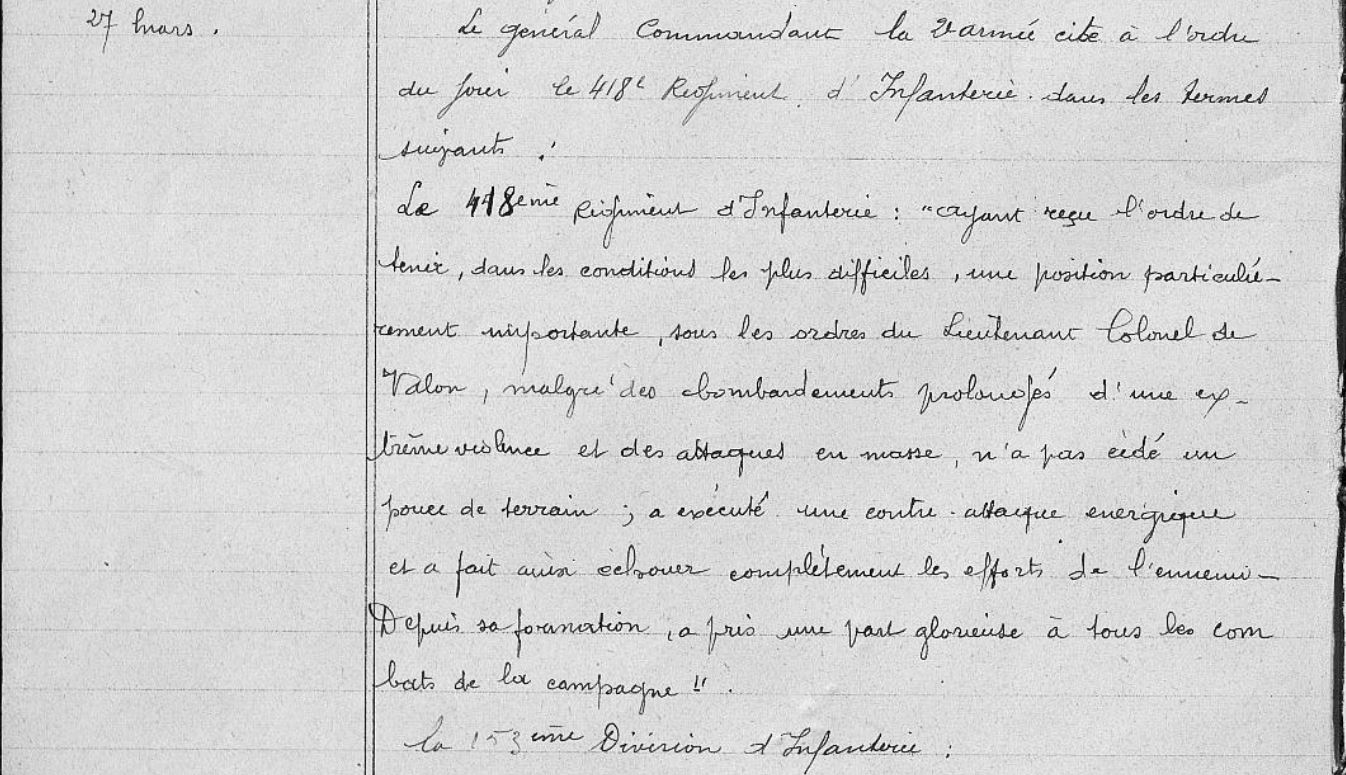 27 Mars.
Le général Commandant la 2e armée cite à l'ordre
du jour le 418e Régiment d'Infanterie dans les termes
suivants :
Le 418ème Régiment d'Infanterie : "ayant reçu l'ordre de
tenir, dans les conditions les plus difficiles, une position particuliè-
rement importante, sous les ordres du Lieutenant Colonel de
Valon, malgré des bombardements prolongés d'une ex-
trême violence et des attaques en masse, n'a pas cédé un
pouce de terrain ; a exécuté une contre-attaque energique
et a fait ainsi échouer complètement les efforts de l'ennemi -
Depuis sa formation, a pris une part glorieuse à tous les com
bats de la campagne".
la 153ème Division d'Infanterie :